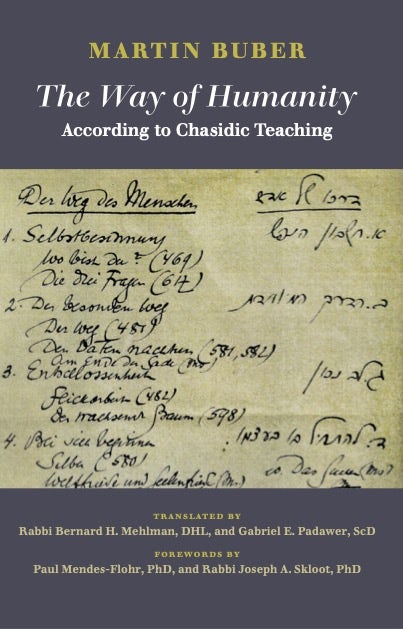 MARTIN BUBER
The Way of Humanity
According to Chasidic Teaching
Der Weg des Menschen
דרכו של אדם
1. Selbstbesinnung
א. חשבון הנפש
Wo bist du? (469)
Die drei Fragen (614)
2. Der besondere Weg
ב. הדרך המיוחדת
Der Weg (481)
nachtun (581, 582)
Am Ende der
3. Entschlossenheit
ג. לב נכון
Flickarbeit (482)
Der wachsende Baum (598)
4. Bei sich beginnen
ד. להתחיל בו בעצמו
Selber (580)
Das
Weltfriede und Seelenfriede
TRANSLATED BY
Rabbi Bernard H. Mehlman, DHL, and Gabriel E. Padawer, ScD
FOREWORDS BY
Paul Mendes-Flohr, PhD, and Rabbi Joseph A. Skloot, PhD